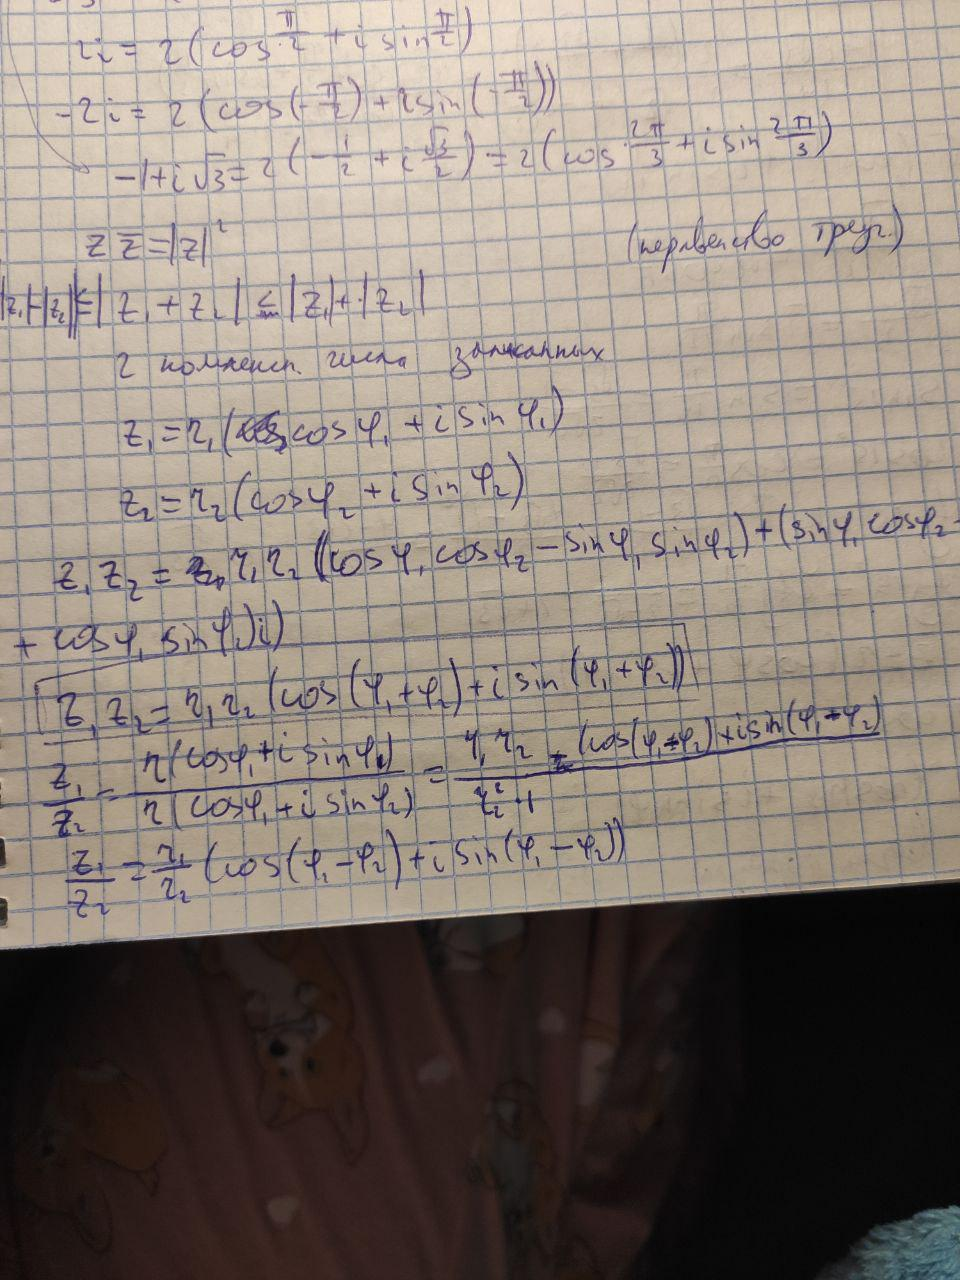 2i = 2(cos π/2 + i sin π/2)
-2i = 2(cos(-π/2) + i sin(-π/2))
-1+i√3 = 2(-1/2 + i √3/2) = 2(cos 2π/3 + i sin 2π/3)
z z̅ = |z|²
(неравенство треуг.)
||z₁|-|z₂|| ≤ |z₁ + z₂| ≤ |z₁| + |z₂|
2 комплексн. числа записанных
z₁ = r₁(cos φ₁ + i sin φ₁)
z₂ = r₂(cos φ₂ + i sin φ₂)
z₁ z₂ = r₁ r₂ ((cos φ₁ cos φ₂ - sin φ₁ sin φ₂) + (sin φ₁ cos φ₂ +
+ cos φ₁ sin φ₂)i)
z₁ z₂ = r₁ r₂ (cos(φ₁+φ₂) + i sin(φ₁+φ₂))
z₁/z₂ = r(cos φ₁ + i sin φ₁)/r(cos φ₁ + i sin φ₂) = r₁ r₂ (cos(φ₁-φ₂) + i sin(φ₁-φ₂))/r₂²·1
z₁/z₂ = r₁/r₂ (cos(φ₁-φ₂) + i sin(φ₁-φ₂))